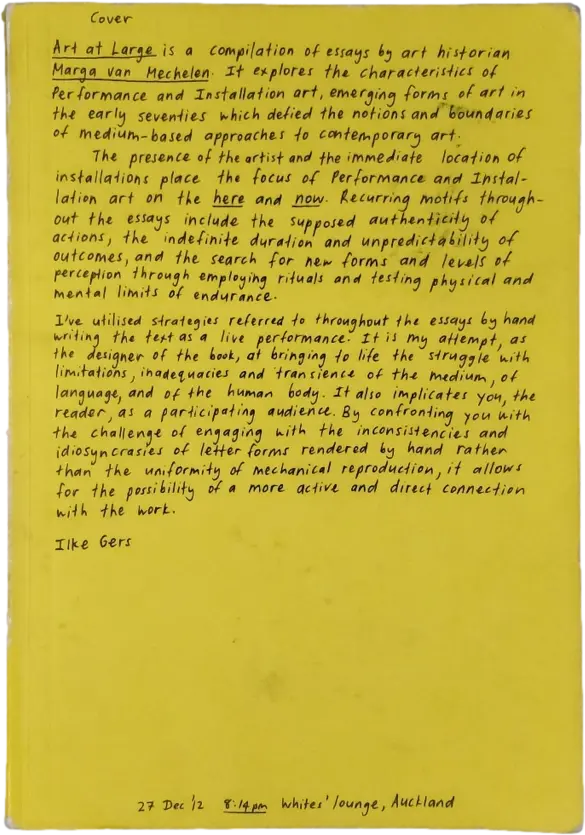 Cover
Art at Large is a compilation of essays by art historian
Marga van Mechelen. It explores the characteristics of
Performance and Installation art, emerging forms of art in
the early seventies which defied the notions and boundaries
of medium-based approaches to contemporary art.
The presence of the artist and the immediate location of
installations place the focus of Performance and Instal-
lation art on the here and now. Recurring motifs through-
out the essays include the supposed authenticity of
actions, the indefinite duration and unpredictability of
outcomes, and the search for new forms and levels of
perception through employing rituals and testing physical and
mental limits of endurance.
I've utilised strategies referred to throughout the essays by hand
writing the text as a live performance. It is my attempt, as
the designer of the book, at bringing to life the struggle with
limitations, inadequacies and transience of the medium, of
language, and of the human body. It also implicates you, the
reader, as a participating audience. By confronting you with
the challenge of engaging with the inconsistencies and
idiosyncrasies of letter forms rendered by hand rather
than the uniformity of mechanical reproduction, it allows
for the possibility of a more active and direct connection
with the work.
Ilke Gers
27 Dec '12 8:14pm Whites' lounge, Auckland